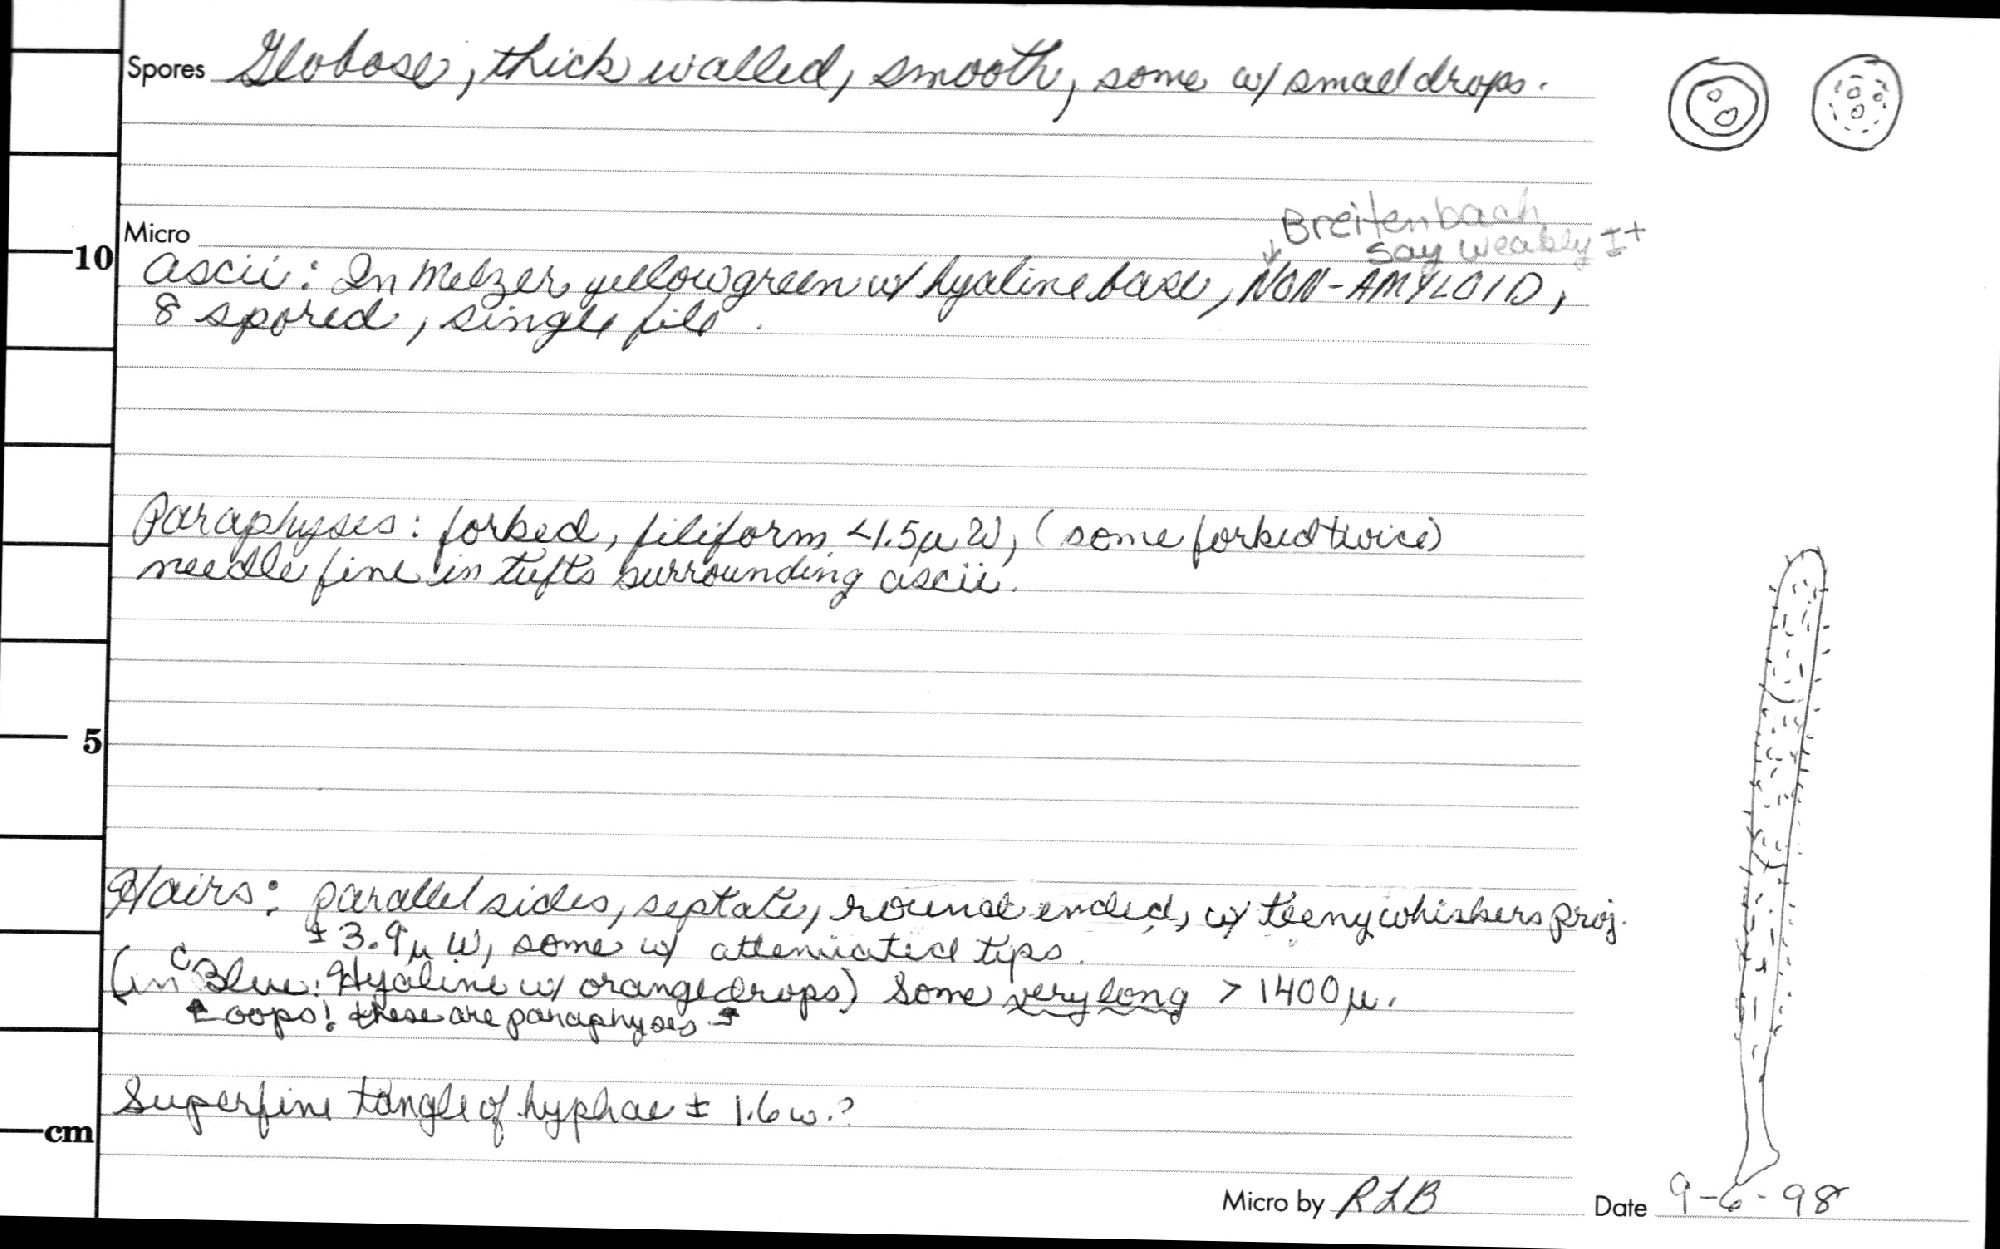 Spores Globose, thick walled, smooth, some w/ small drops.
Breitenbach
say weakly I+
Micro
10
ascii: In Melzer yellowgreen w/ hyaline base, NON-AMYLOID,
8 spored, single file.
Paraphyses: forked, filiform <1.5µ W, (some forked twice)
needle fine in tufts surrounding ascii.
5
Hairs: parallel sides, septate, round ended, w/ teeny whiskers proj.
± 3.9µ W, some w/ attenuated tips.
(in C Blue: Hyaline w/ orange drops) Some very long > 1400µ.
oops! these are paraphyses
Superfine tangle of hyphae ± 1.6 w.?
cm
Micro by RLB Date 9-6-98